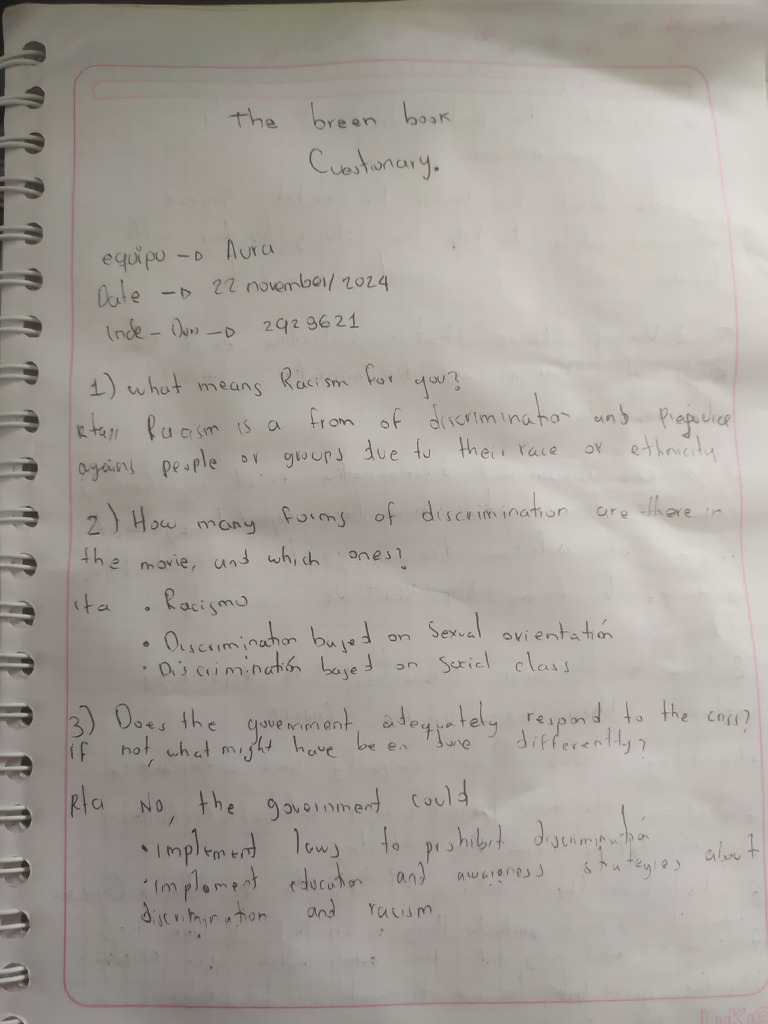 The breen book
Cuestionary.
equipo → Aura
Date → 22 november/2024
→ 2929621
1) what means Racism for you?
Rta// Racism is a from of discrimination and Prejudice
agains people or groups due to their race or ethnicity
2) How many forms of discrimination are there in
the movie, and which ones?
rta . Racismo
• Discrimination based on Sexual orientatión
• Discriminatión based on Social class
3) Does the government adequately respond to the
if not, what might have be en done differently?
Rta No, the government could
• implement laws to prohibit discriminatión
• implement education and awareness strategies about
discrimination and racism.